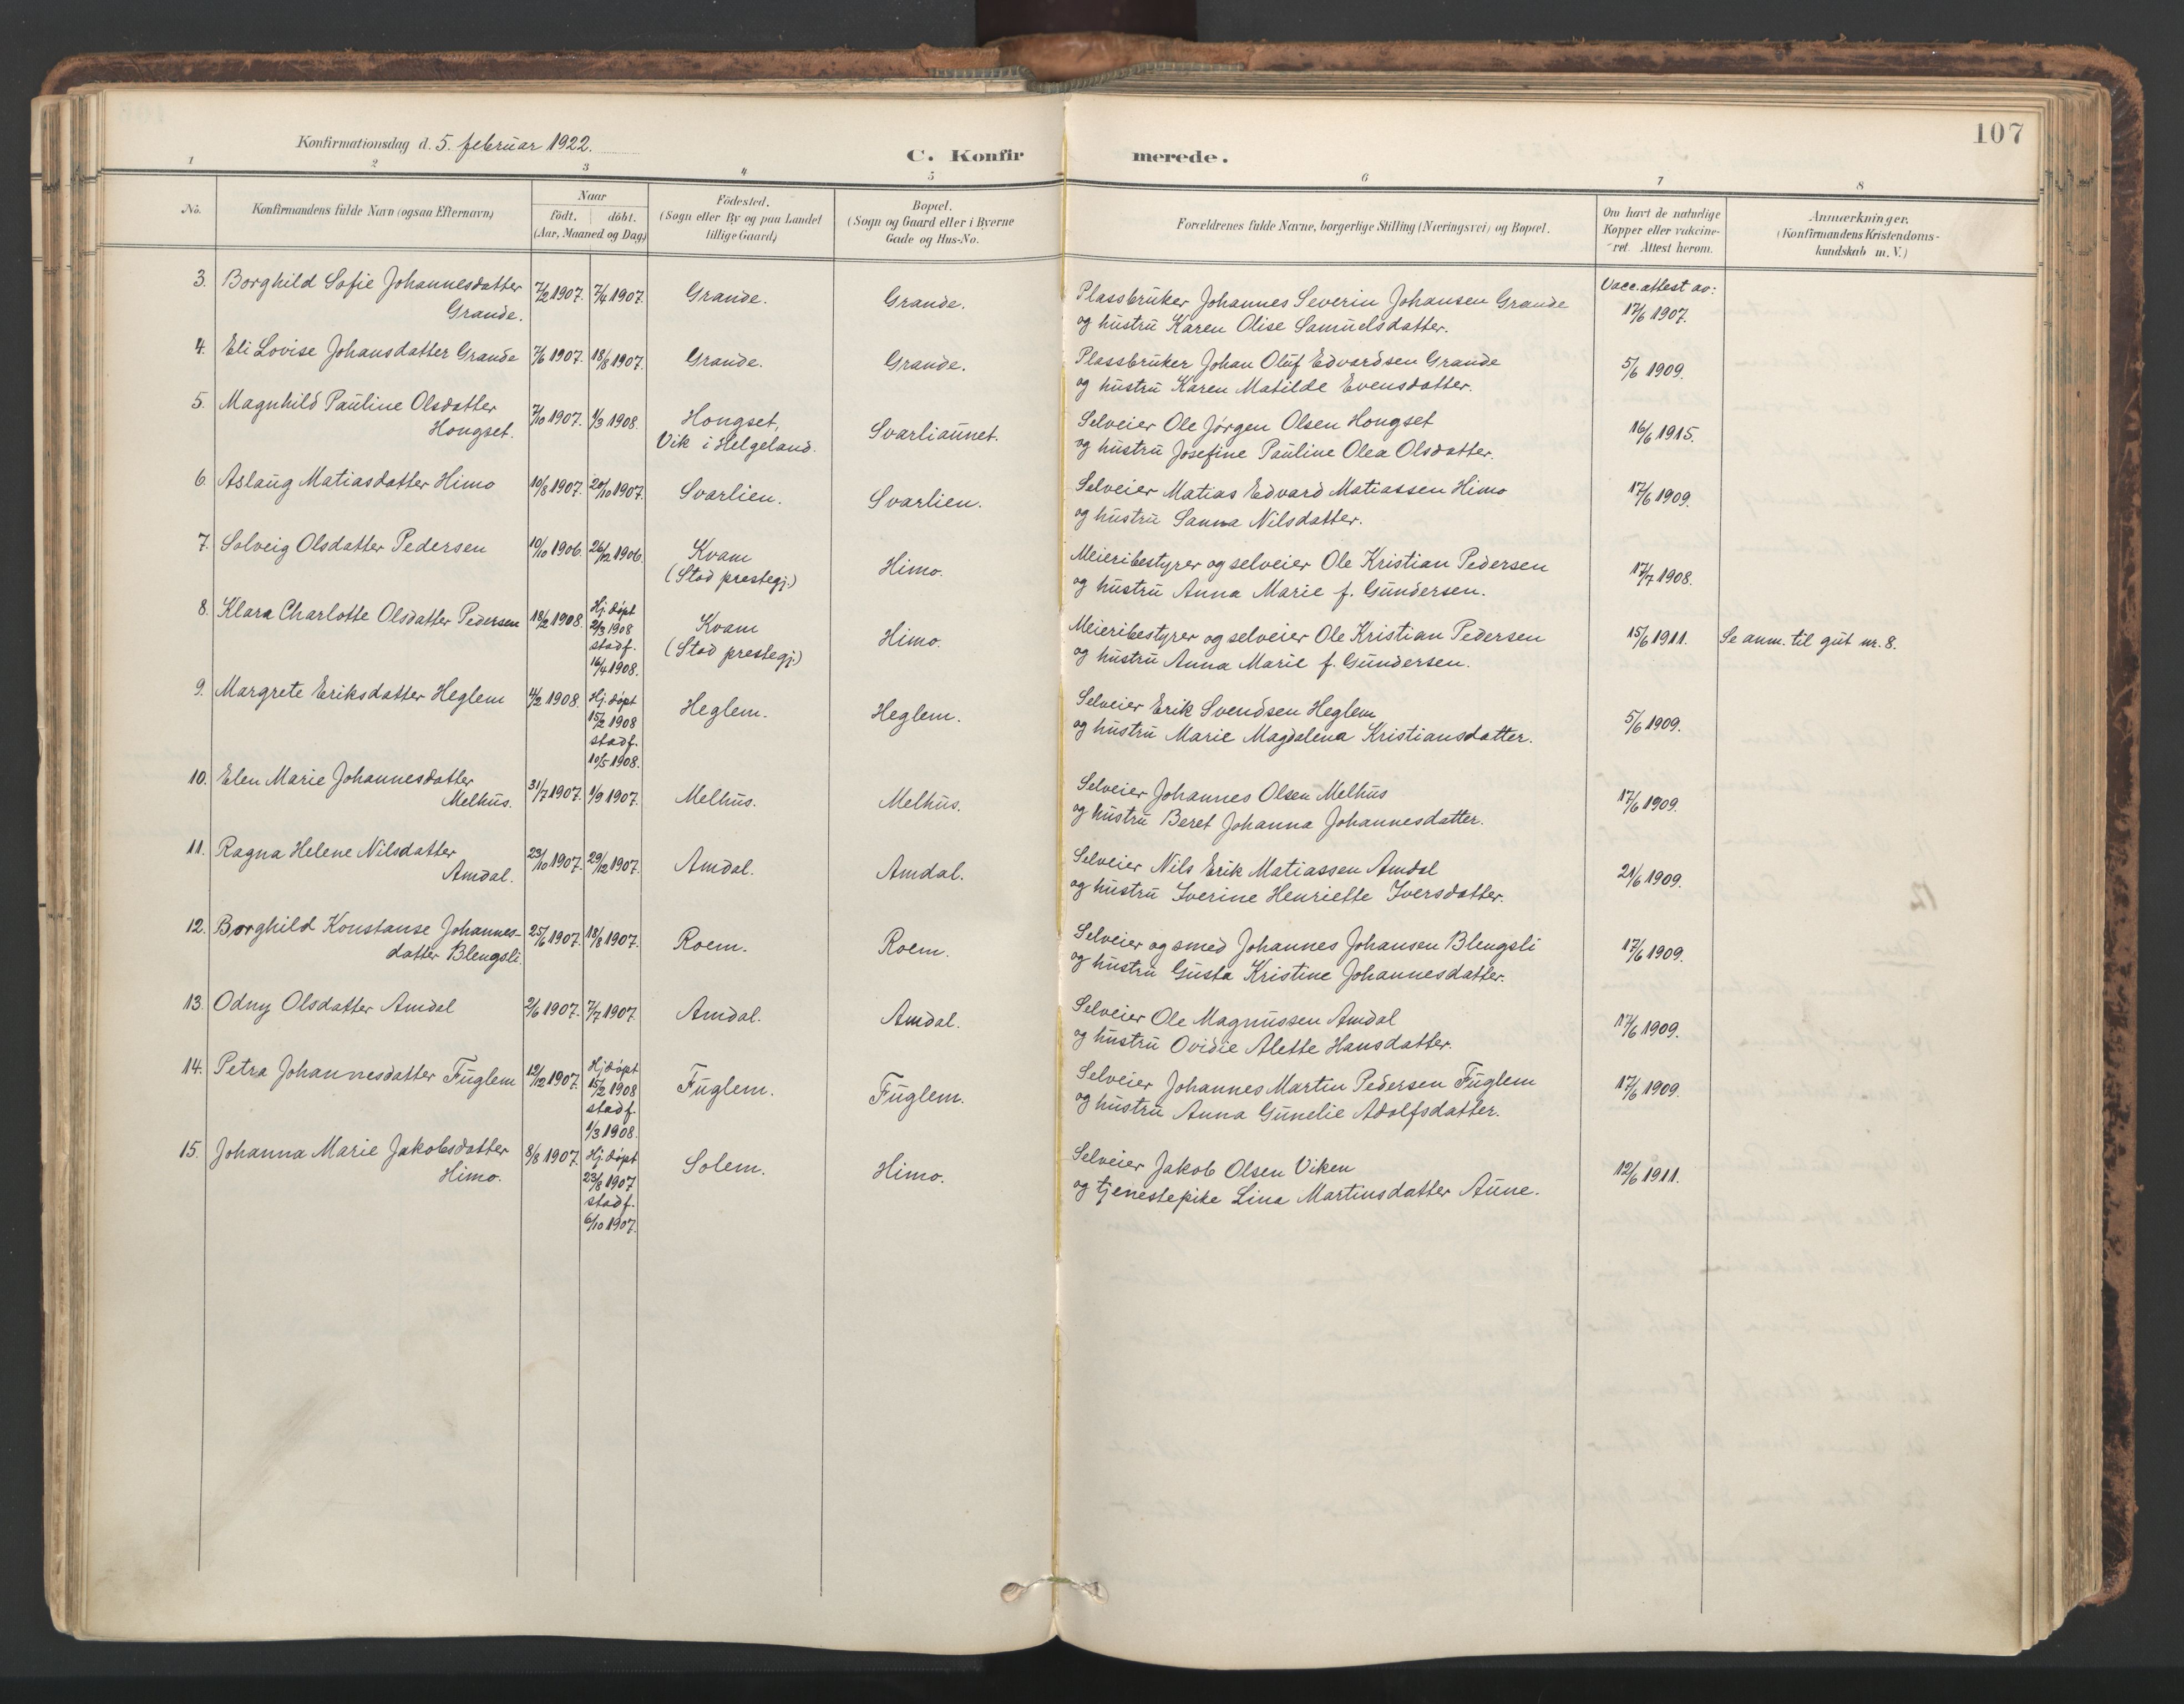 107
Konfirmationsdag d. 5. februar 1922.
C. Konfirmerede.
1 2 3 4 5 6 7 8
No.
Konfirmandens fulde Navn (ogsaa Efternavn)
Naar
födt. döbt.
(Aar, Maaned og Dag)
Födested.
(Sogn eller By og paa Landet
tillige Gaard)
Bopæl.
(Sogn og Gaard eller i Byerne
Gade og Hus-No.
Forældrenes fulde Navne, borgerlige Stilling (Næringsvei) og Bopæl.
Om havt de naturlige
Kopper eller vakcine-
ret. Attest herom.
Anmærkninger.
(Konfirmandens Kristendoms-
kundskab m. V.)
Vacc.attest av:
3. Borghild Sofie Johannesdatter 7/2 1907. 7/4 1907. Grande. Grande. Plassbruker Johannes Severin Johansen Grande 17/6 1907.
Grande. og hustru Karen Olise Samuelsdatter.
4. Eli Lovise Johansdatter Grande 7/6 1907. 18/8 1907. Grande. Grande. Plassbruker Johan Oluf Edvardsen Grande 5/6 1909.
og hustru Karen Matilde Evensdatter.
5. Magnhild Pauline Olsdatter 7/10 1907. 1/3 1908. Hongset, Svarliaunet. Selveier Ole Jørgen Olsen Hongset 16/6 1915.
Hongset. Vik i Helgeland. og hustru Josefine Pauline Olea Olsdatter.
6. Aslaug Matiasdatter Himo 10/8 1907. 20/10 1907. Svarlien. Svarlien. Selveier Matias Edvard Matiassen Himo 17/6 1909.
og hustru Sanna Nilsdatter.
7. Solveig Olsdatter Pedersen 10/10 1906. 26/12 1906. Kvam Himo. Meieribestyrer og selveier Ole Kristian Pedersen 17/7 1908.
(Stod prestegj.) og hustru Anna Marie f. Gundersen.
8. Klara Charlotte Olsdatter Pedersen 18/2 1908. Hj. døpt Kvam Himo. Meieribestyrer og selveier Ole Kristian Pedersen 15/6 1911. Se anm. til gut nr. 8.
2/3 1908 (Stod prestegj.) og hustru Anna Marie f. Gundersen.
stadf.
16/4 1908.
9. Margrete Eriksdatter Heglem 4/2 1908. Hj. døpt Heglem. Heglem. Selveier Erik Svendsen Heglem 5/6 1909.
15/2 1908 og hustru Marie Magdalena Kristiansdatter.
stadf.
10/5 1908.
10. Elen Marie Johannesdatter 31/7 1907. 1/9 1907. Melhus. Melhus. Selveier Johannes Olsen Melhus 17/6 1909.
Melhus. og hustru Beret Johanna Johannesdatter.
11. Ragna Helene Nilsdatter 23/10 1907. 29/12 1907. Amdal. Amdal. Selveier Nils Erik Matiassen Amdal 21/6 1909.
Amdal. og hustru Iverine Henriette Iversdatter.
12. Borghild Konstanse Johannes- 25/6 1907. 18/8 1907. Roem. Roem. Selveier og smed Johannes Johansen Blengsli 17/6 1909.
datter Blengsli. og hustru Gusta Kristine Johannesdatter.
13. Odny Olsdatter Amdal 2/6 1907. 7/7 1907. Amdal. Amdal. Selveier Ole Magnussen Amdal 17/6 1909.
og hustru Ovidie Alette Hansdatter.
14. Petra Johannesdatter Fuglem 12/12 1907. Hj. døpt Fuglem. Fuglem. Selveier Johannes Martin Pedersen Fuglem 17/6 1909.
15/2 1908 og hustru Anna Gunelie Adolfsdatter.
stadf.
1/3 1908.
15. Johanna Marie Jakobsdatter 8/8 1907. Hj. døpt Solem. Himo. Selveier Jakob Olsen Viken 12/6 1911.
Himo. 23/8 1907 og tjenestepike Lina Martinsdatter Aune.
stadf.
6/10 1907.